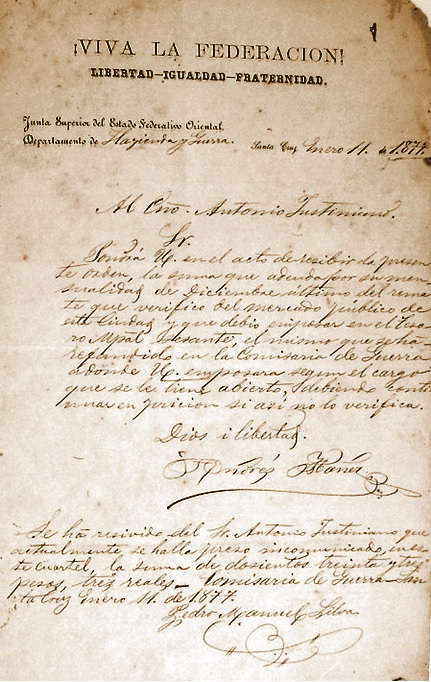 1
¡VIVA LA FEDERACION!
LIBERTAD—IGUALDAD—FRATERNIDAD.
Junta Superior del Estado Federativo Oriental.
Departamento de Hazienda y Guerra.
Santa Cruz Enero 11. de 1877.
Al Cno. Antonio Justiniano.
Sr.
Pondrá U. en el acto de recibir la presen
te orden, la suma que adeuda por su men
sualidad de Diciembre último del rema
te que verificó del mercado público de
esta Ciudad y que debió emposar en el Teso
ro Mpal Cesante, el mismo que se ha
refundido en la Comisaria de Guerra
adonde U. emposara segun el cargo
que se le tiene abierto, debiendo conti
nuar en pricion si asi no lo verifica.
Dios i libertad.
Andrés Ibañez
Se ha resivido del Sr. Antonio Justiniano que
actualmente se halla preso incomunicado en es
te Cuartel, la suma de dosientos treinta y tres
pesos, tres reales— Comisaria de Guerra—San
ta Cruz Enero 11. de 1877.
Pedro Manuel Silva